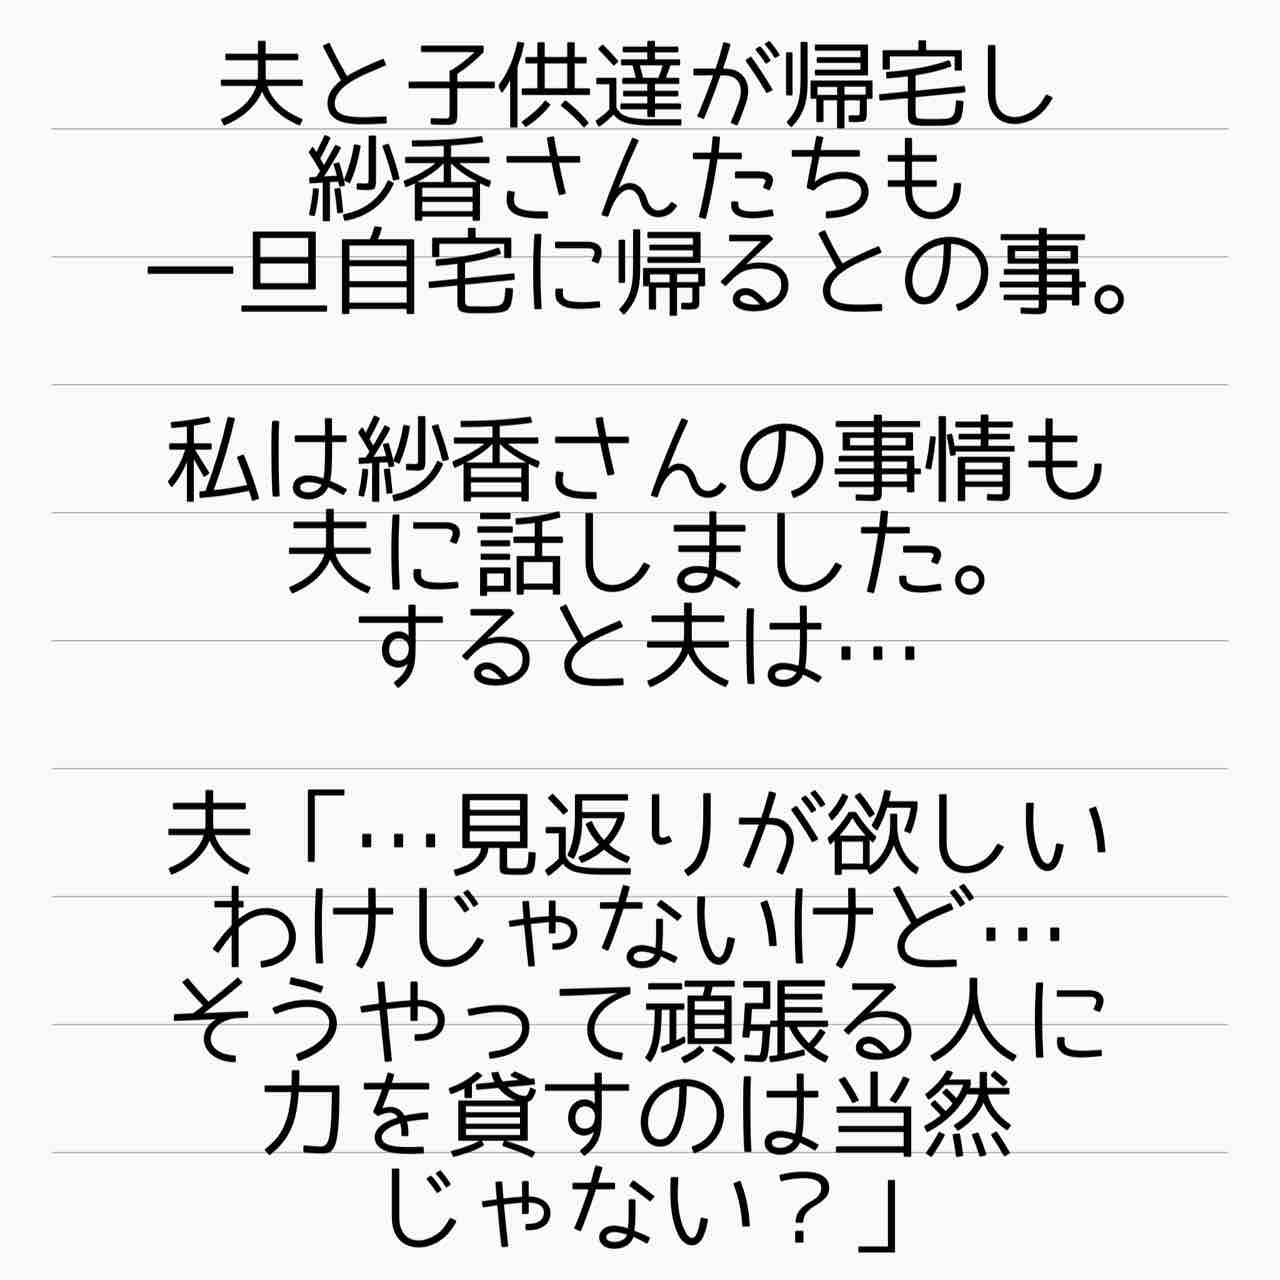 夫と子供達が帰宅し
紗香さんたちも
一旦自宅に帰るとの事。
私は紗香さんの事情も
夫に話しました。
すると夫は…
夫「…見返りが欲しい
わけじゃないけど…
そうやって頑張る人に
力を貸すのは当然
じゃない？」